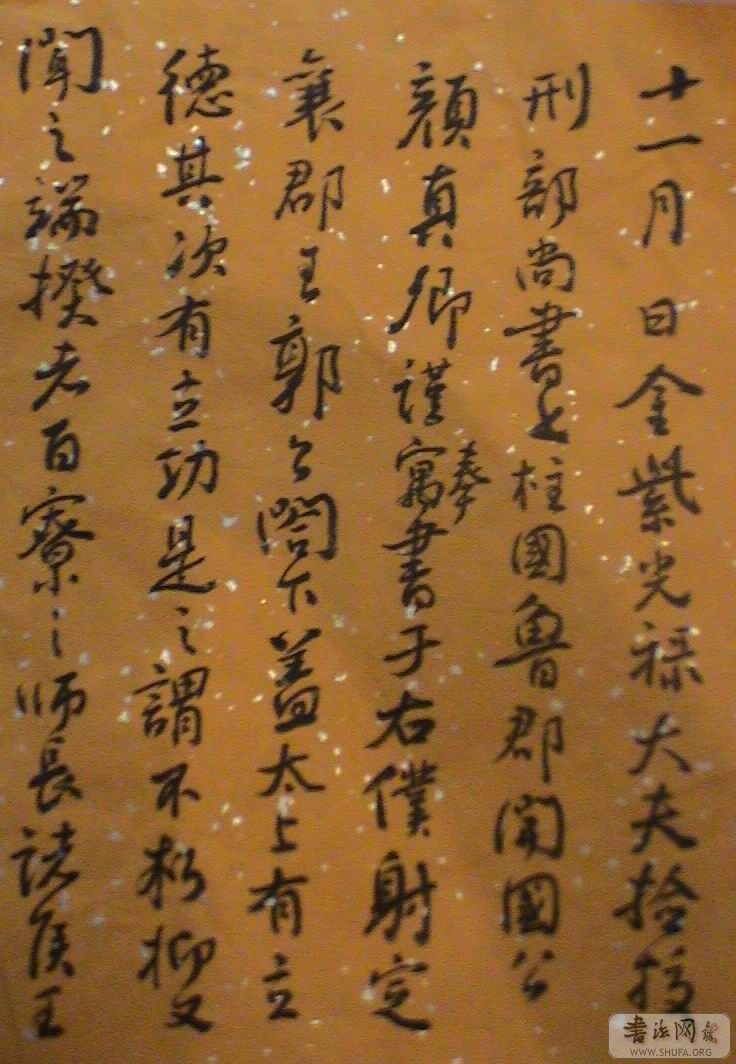 十一月日金紫光祿大夫撿挍
刑部尚書上柱國魯郡開國公
顏真卿謹寓奉書于右僕射定
襄郡王郭公閤下蓋太上有立
德其次有立功是之謂不朽抑又
聞之端揆者百寮之師長諸侯王
書法网
WWW.SHUFA.ORG